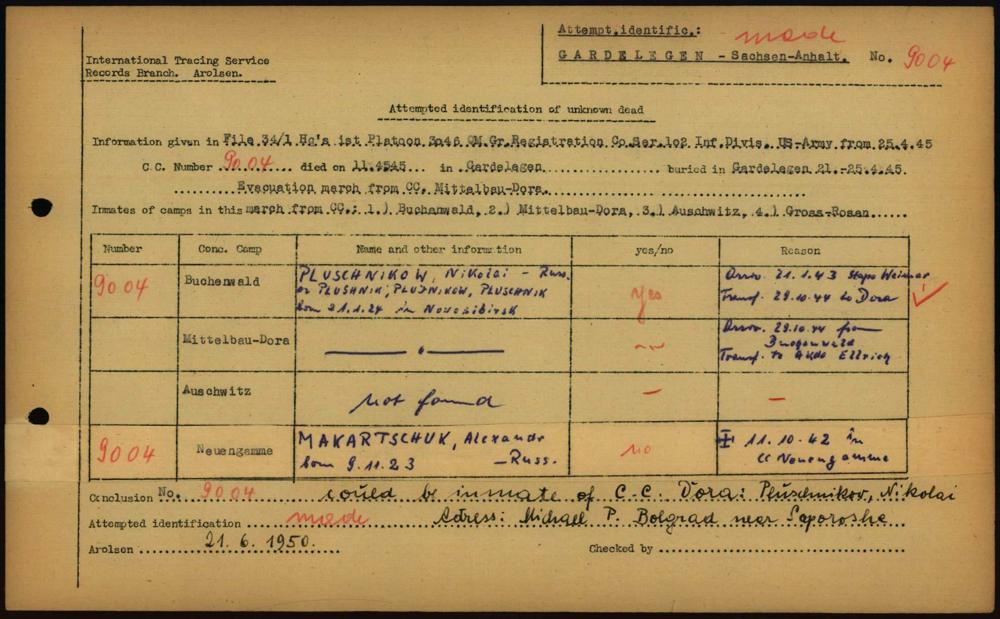 Attempt.identific.: made
GARDELEGEN - Sachsen-Anhalt. No. 9004
International Tracing Service
Records Branch. Arolsen.
Attempted identification of unknown dead
Information given in File 34/1 Hq's 1st Platoon 3046 QM.Gr.Registration Co.Ser.102 Inf.Divis. US-Army from 25.4.45
C.C. Number 9004 died on 11.4545 in Gardelegen buried in Gardelegen 21.-25.4.45
Evacuation march from CC. Mittelbau-Dora.
Inmates of camps in this march from CC.: 1.) Buchenwald, 2.) Mittelbau-Dora, 3.) Auschwitz, 4.) Gross-Rosen
Number Conc. Camp Name and other information yes/no Reason
9004 Buchenwald PLUSCHNIKOW, Nikolai - Russ. yes Arrv. 21.1.43 Stapo Weimar
or PLUSHNIK, PLUJNIKOW, PLUSCHNIK Transf. 29.10.44 to Dora ✓
born 21.1.24 in Novosibirsk
Mittelbau-Dora — " — — " — Arrv. 29.10.44 from
Buchenwald
Transf. to Ellrich
Auschwitz not found — —
9004 Neuengamme MAKARTSCHUK, Alexande no 11.10.42 in
born 9.11.23 - Russ. CC Neuengamme
Conclusion No. 9004 could be inmate of C-C. Dora: Pluschnikov, Nikolai
Attempted identification made Adress: Michael P. Bolgrad near Saporoshe
Arolsen 21.6.1950. Checked by